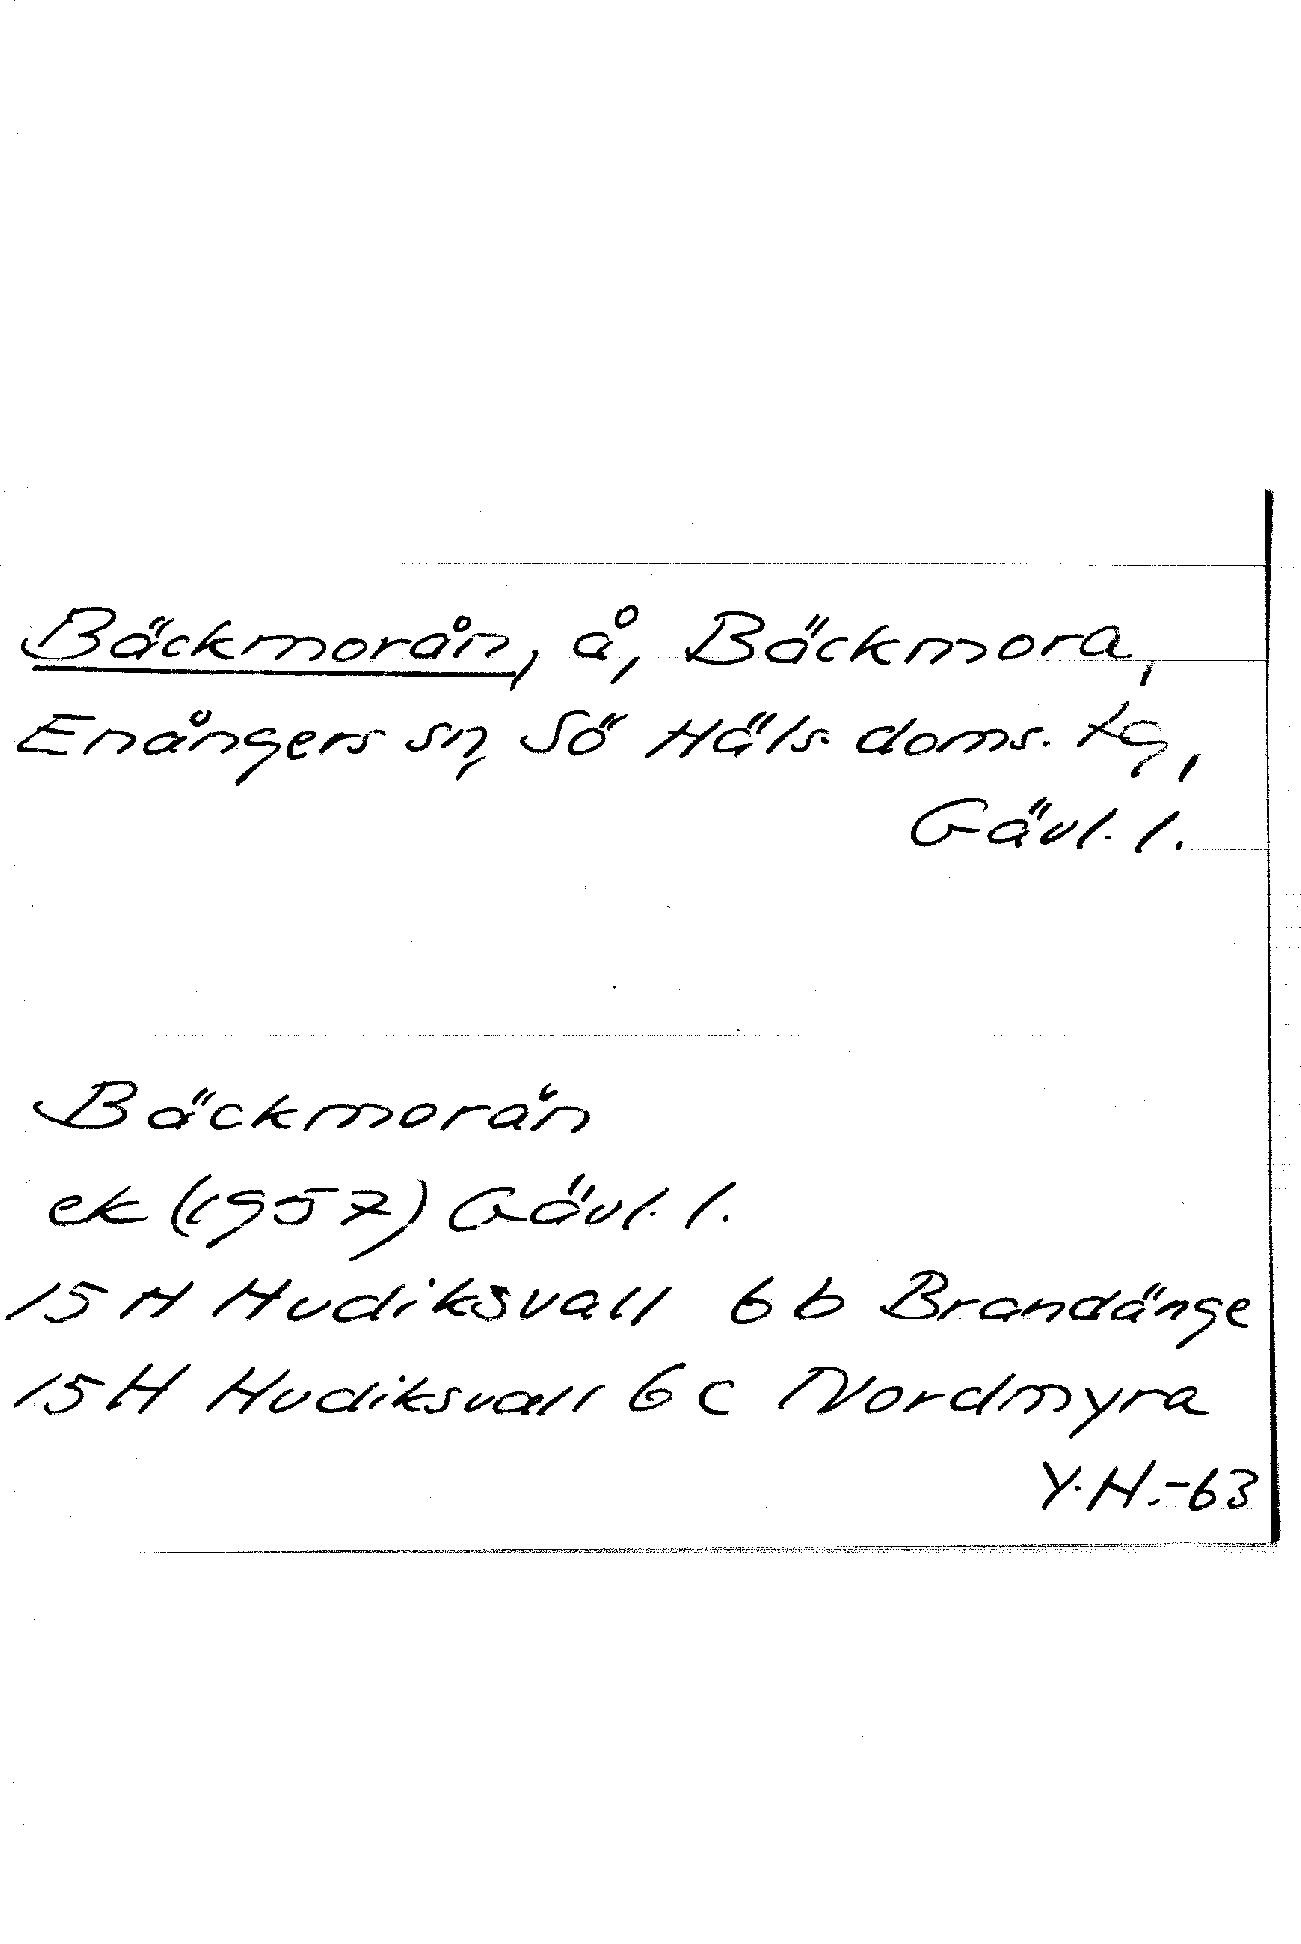 Bäckmorån, å, Bäckmora,
Enångers sn, Sö Häls. doms. tg,
Gävl. l.
Bäckmorån
ek (1957) Gävl. l.
15 H Hudiksvall 6 b Brandänge
15 H Hudiksvall 6 c Nordmyra
Y.H.-63